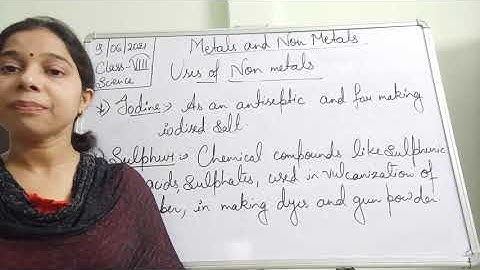 9/06/2021
Class-VIII
Science
Metals and Non Metals.
Uses of Non metals
Iodine → As an antiseptic and for making
iodised salt.
Sulphur → Chemical compounds like sulphuric
acids, sulphates, used in vulcanization of
ber, in making dyes and gun powder